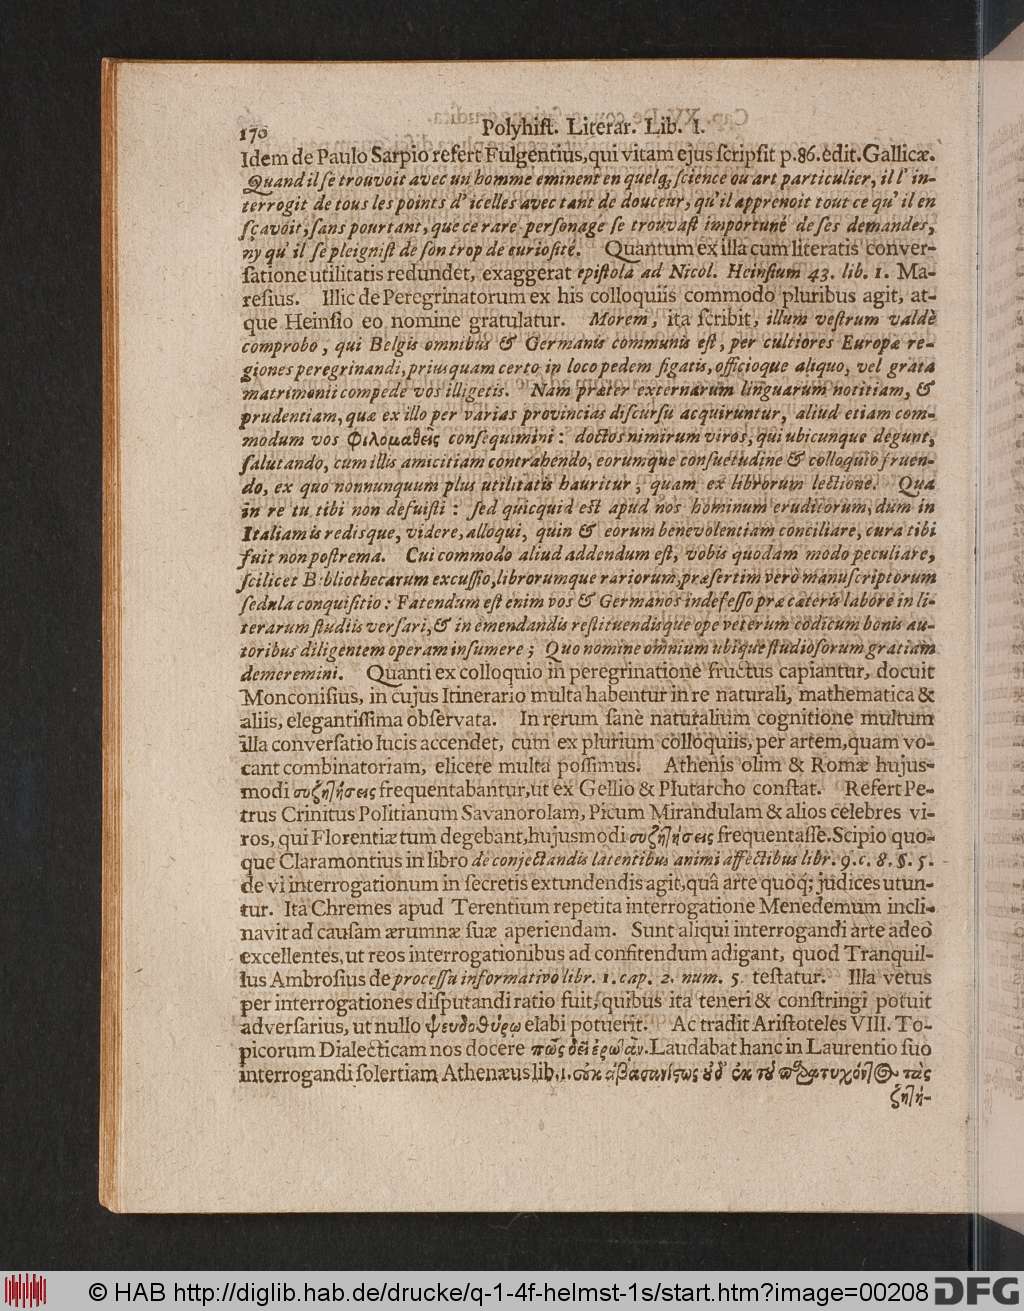 170 Polyhiſt. Literar. Lib. I.
Idem de Paulo Sarpio refert Fulgentius, qui vitam ejus ſcripſit p. 86. edit. Gallicæ.
Quand il ſe trouvoit avec un homme eminent en quelq; ſcience ou art particulier, il l' in-
terrogit de tous les points d' icelles avec tant de douceur, qu' il apprenoit tout ce qu' il en
ſçavoit, ſans pourtant, que ce rare perſonage ſe trouvaſt importunè de ſes demandes,
ny qu' il ſe pleigniſt de ſon trop de curioſité. Quantum ex illa cum literatis conver-
ſatione utilitatis redundet, exaggerat epiſtola ad Nicol. Heinſium 43. lib. 1. Ma-
reſius. Illic de Peregrinatorum ex his colloquiis commodo pluribus agit, at-
que Heinſio eo nomine gratulatur. Morem, ita ſcribit, illum veſtrum valdè
comprobo, qui Belgis omnibus & Germanis communis eſt, per cultiores Europæ re-
giones peregrinandi, priusquam certo in loco pedem figatis, officioque aliquo, vel grata
matrimonii compede vos illigetis. Nam præter externarum linguarum notitiam, &
prudentiam, quæ ex illo per varias provincias diſcurſu acquiruntur, aliud etiam com-
modum vos φιλομαθεῖς conſequimini: doctos nimirum viros, qui ubicunque degunt,
ſalutando, cum illis amicitiam contrahendo, eorumque conſuetudine & colloquio fruen-
do, ex quo nonnunquum plus utilitatis hauritur, quam ex librorum lectione. Qua
in re tu tibi non defuiſti: ſed quicquid eſt apud nos hominum eruditorum, dum in
Italiam is redisque, videre, alloqui, quin & eorum benevolentiam conciliare, cura tibi
fuit non poſtrema. Cui commodo aliud addendum eſt, vobis quodam modo peculiare,
ſcilicet Bibliothecarum excuſſio, librorumque rariorum, præſertim verò manuſcriptorum
ſedula conquiſitio: Fatendum eſt enim vos & Germanos indefeſſo præ cæteris labore in li-
terarum ſtudiis verſari, & in emendandis reſtituendisque ope veterum codicum bonis au-
toribus diligentem operam inſumere; Quo nomine omnium ubique ſtudioſorum gratiam
demeremini. Quanti ex colloquio in peregrinatione fructus capiantur, docuit
Monconiſius, in cujus Itinerario multa habentur in re naturali, mathematica &
aliis, elegantiſſima obſervata. In rerum ſanè naturalium cognitione multum
illa converſatio lucis accendet, cum ex plurium colloquiis, per artem, quam vo-
cant combinatoriam, elicere multa poſſimus. Athenis olim & Romæ hujus-
modi συζητήσεις frequentabantur, ut ex Gellio & Plutarcho conſtat. Refert Pe-
trus Crinitus Politianum Savanorolam, Picum Mirandulam & alios celebres vi-
ros, qui Florentiæ tum degebant, hujusmodi συζητήσεις frequentaſſe. Scipio quo-
que Claramontius in libro de conjectandis latentibus animi affectibus libr. 9. c. 8. §. 5.
de vi interrogationum in ſecretis extundendis agit, quâ arte quoq; judices utun-
tur. Ita Chremes apud Terentium repetita interrogatione Menedemum incli-
navit ad cauſam ærumnæ ſuæ aperiendam. Sunt aliqui interrogandi arte adeò
excellentes, ut reos interrogationibus ad confitendum adigant, quod Tranquil-
lus Ambroſius de proceſſu informativo libr. 1. cap. 2. num. 5. teſtatur. Illa vetus
per interrogationes diſputandi ratio fuit, quibus ita teneri & conſtringi potuit
adverſarius, ut nullo ψευδοθύρω elabi potuerit. Ac tradit Ariſtoteles VIII. To-
picorum Dialecticam nos docere πῶς δεῖ ἐρωτᾶν. Laudabat hanc in Laurentio ſuo
interrogandi ſolertiam Athenæus lib. 1. οὐκ ἀβασανίςως οὐδ' ἐκ τοῦ παρατυχόντος τὰς
ζητή-
© HAB http://diglib.hab.de/drucke/q-1-4f-helmst-1s/start.htm?image=00208 DFG